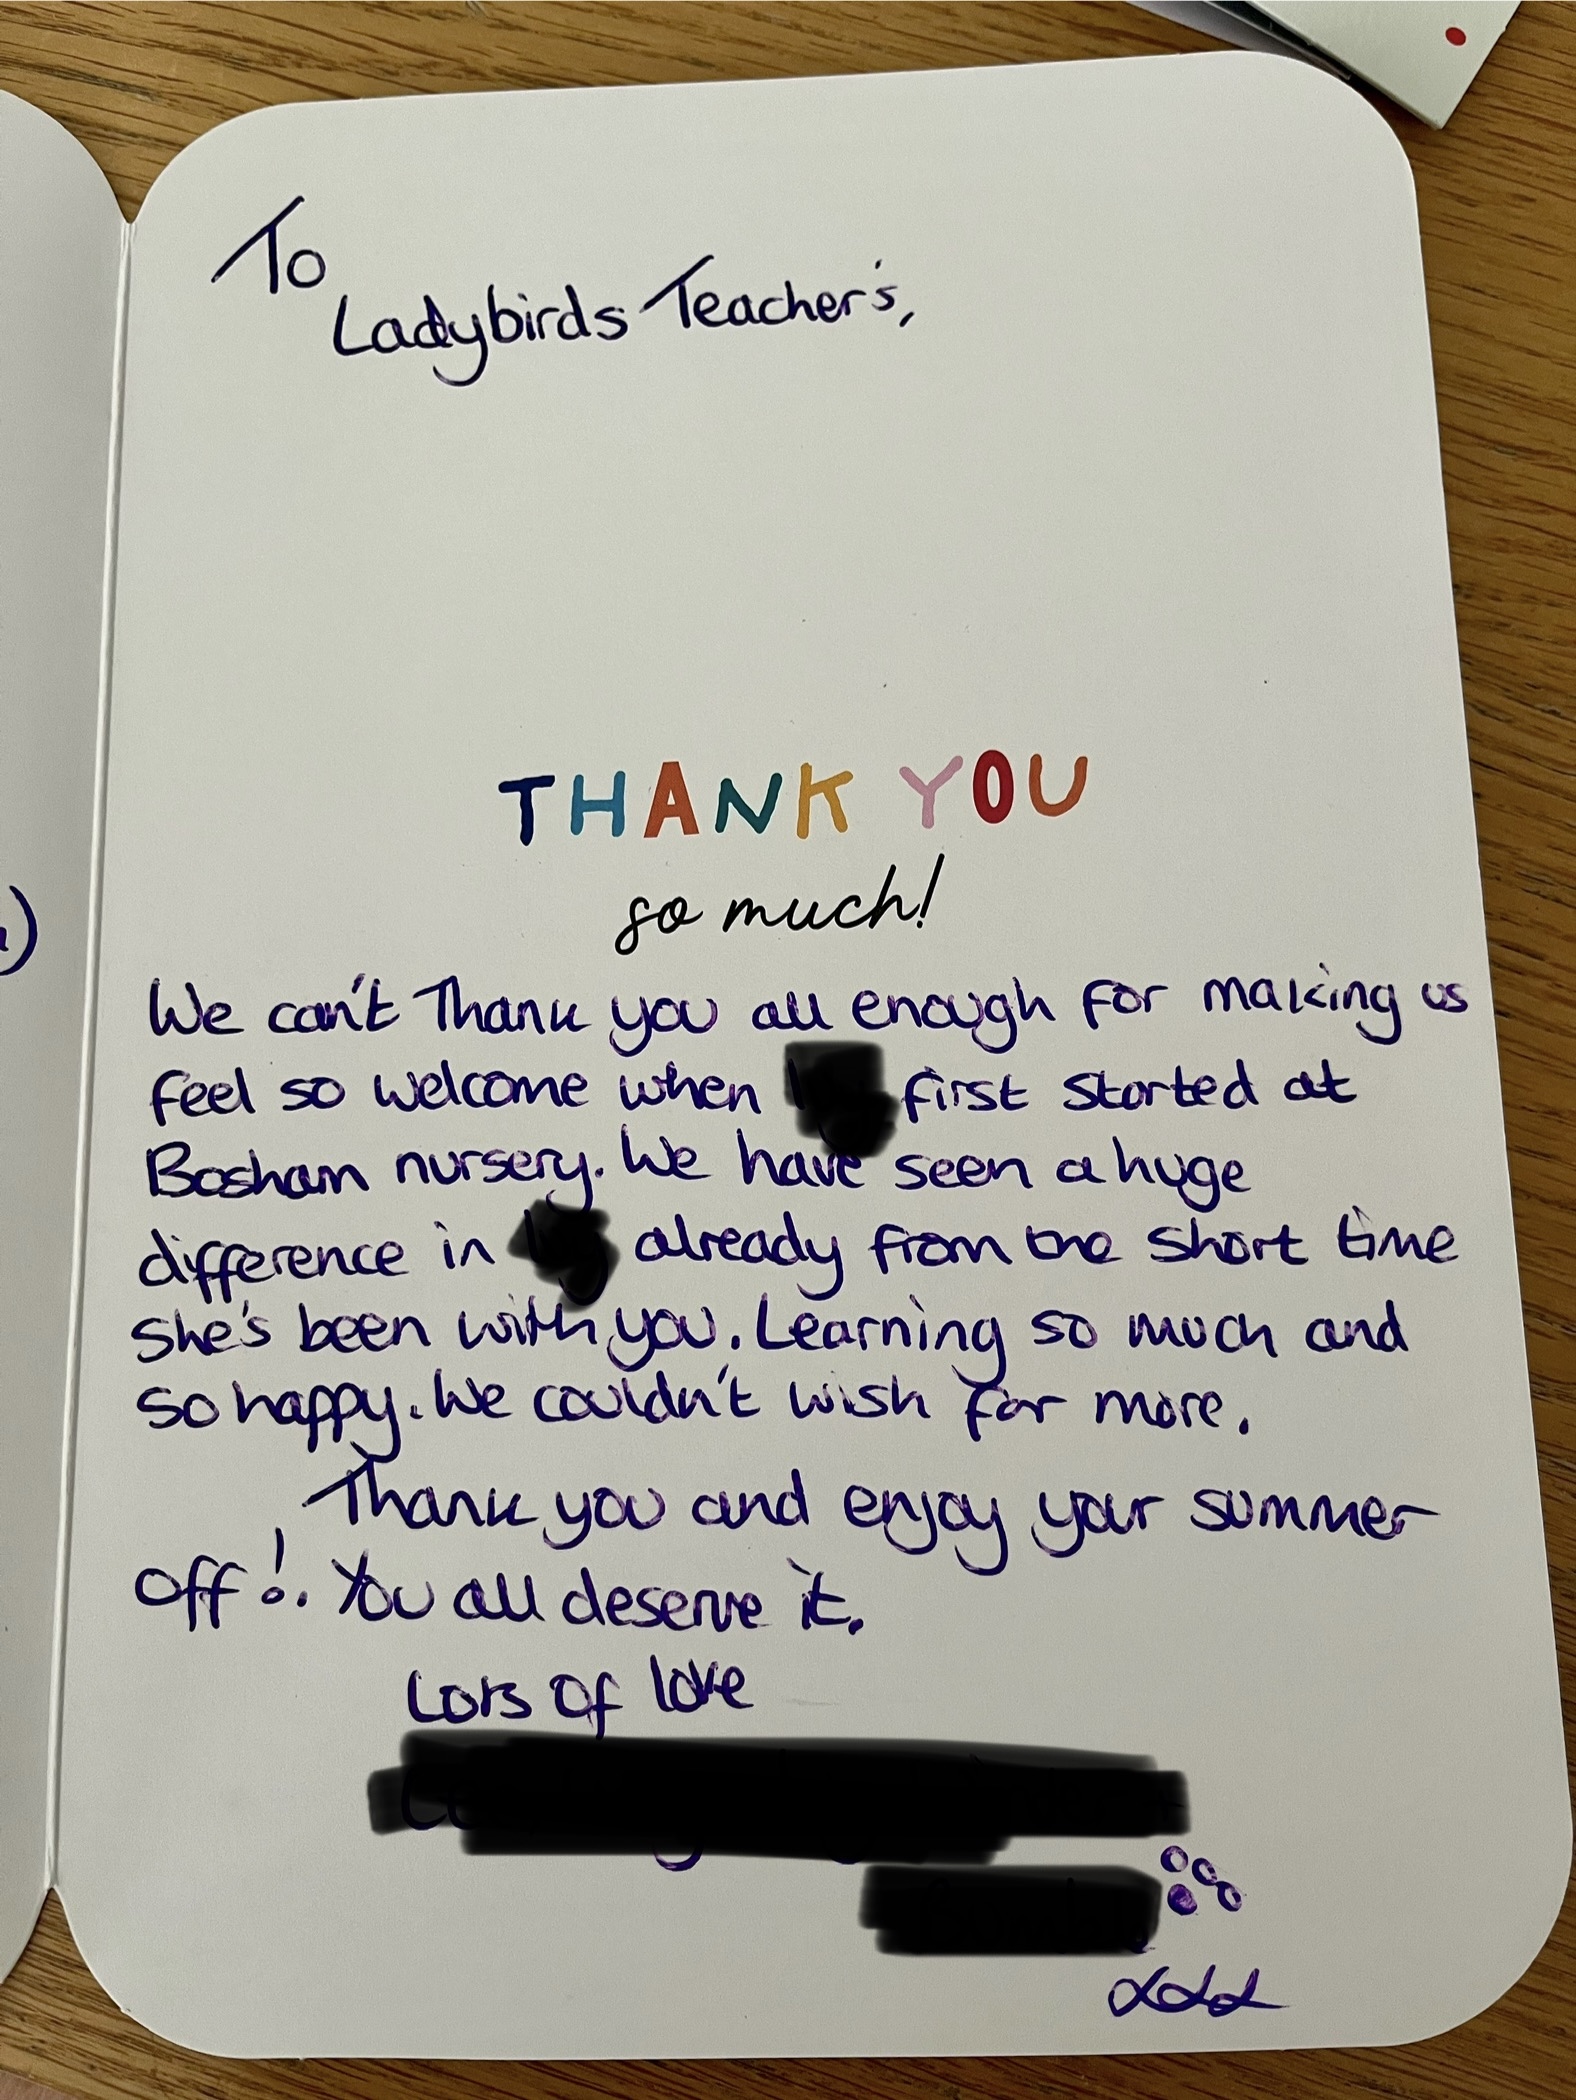 To
Ladybirds Teacher's,
THANK YOU
so much!
We can't Thank you all enough for making us
feel so welcome when first started at
Bosham nursery. We have seen a huge
difference in already from the short time
she's been with you. Learning so much and
so happy. We couldn't wish for more.
Thank you and enjoy your summer
off!. You all deserve it.
Lots of love
xxx